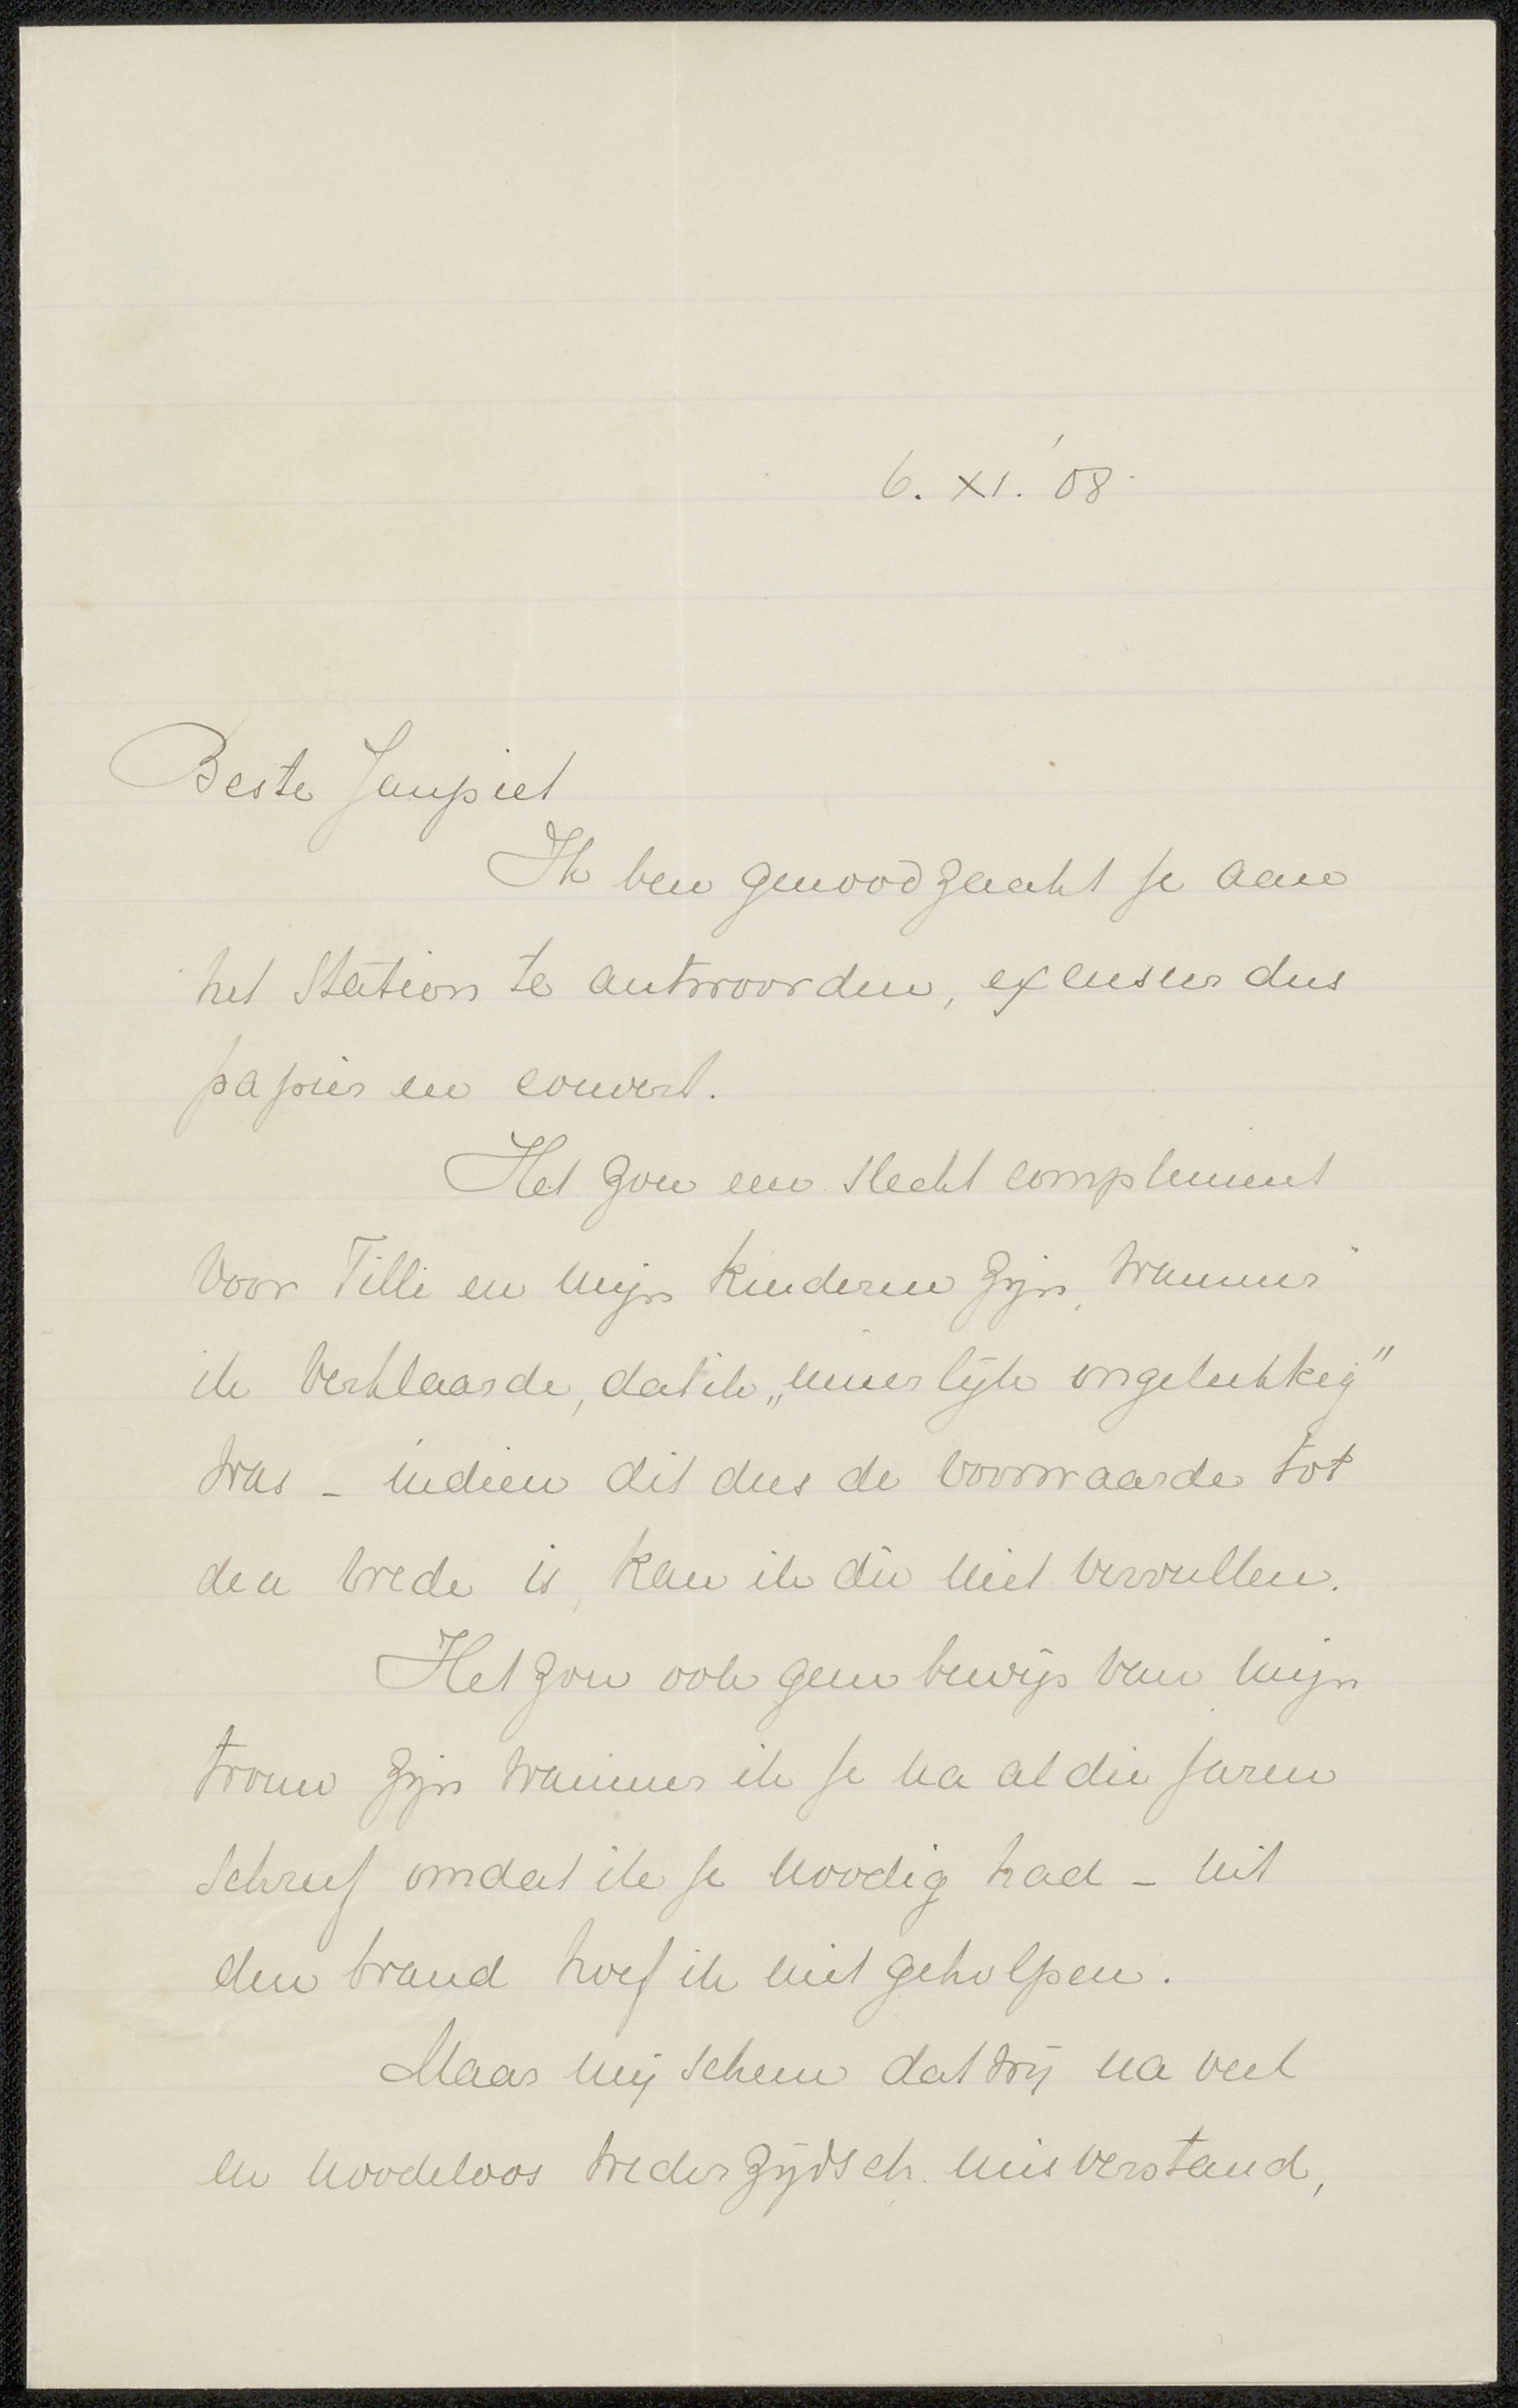 6. XI. '08
Beste Janpiet
Ik ben genoodzaakt je aan
het Station te antwoorden, excuseer dus
papier en couvert.
Het zou een slecht compliment
voor Tilli en mijn kinderen zijn, wanneer
ik verklaarde, dat ik „innerlijk ongelukkig"
was – indien dit dus de voorwaarde tot
den vrede is, kan ik die niet vervullen.
Het zou ook geen bewijs van mijn
trouw zijn wanneer ik je na al die jaren
schreef omdat ik je noodig had – uit
den brand hoef ik niet geholpen.
Maar mij scheen dat wij na veel
en noodeloos wederzijdsch misverstand,